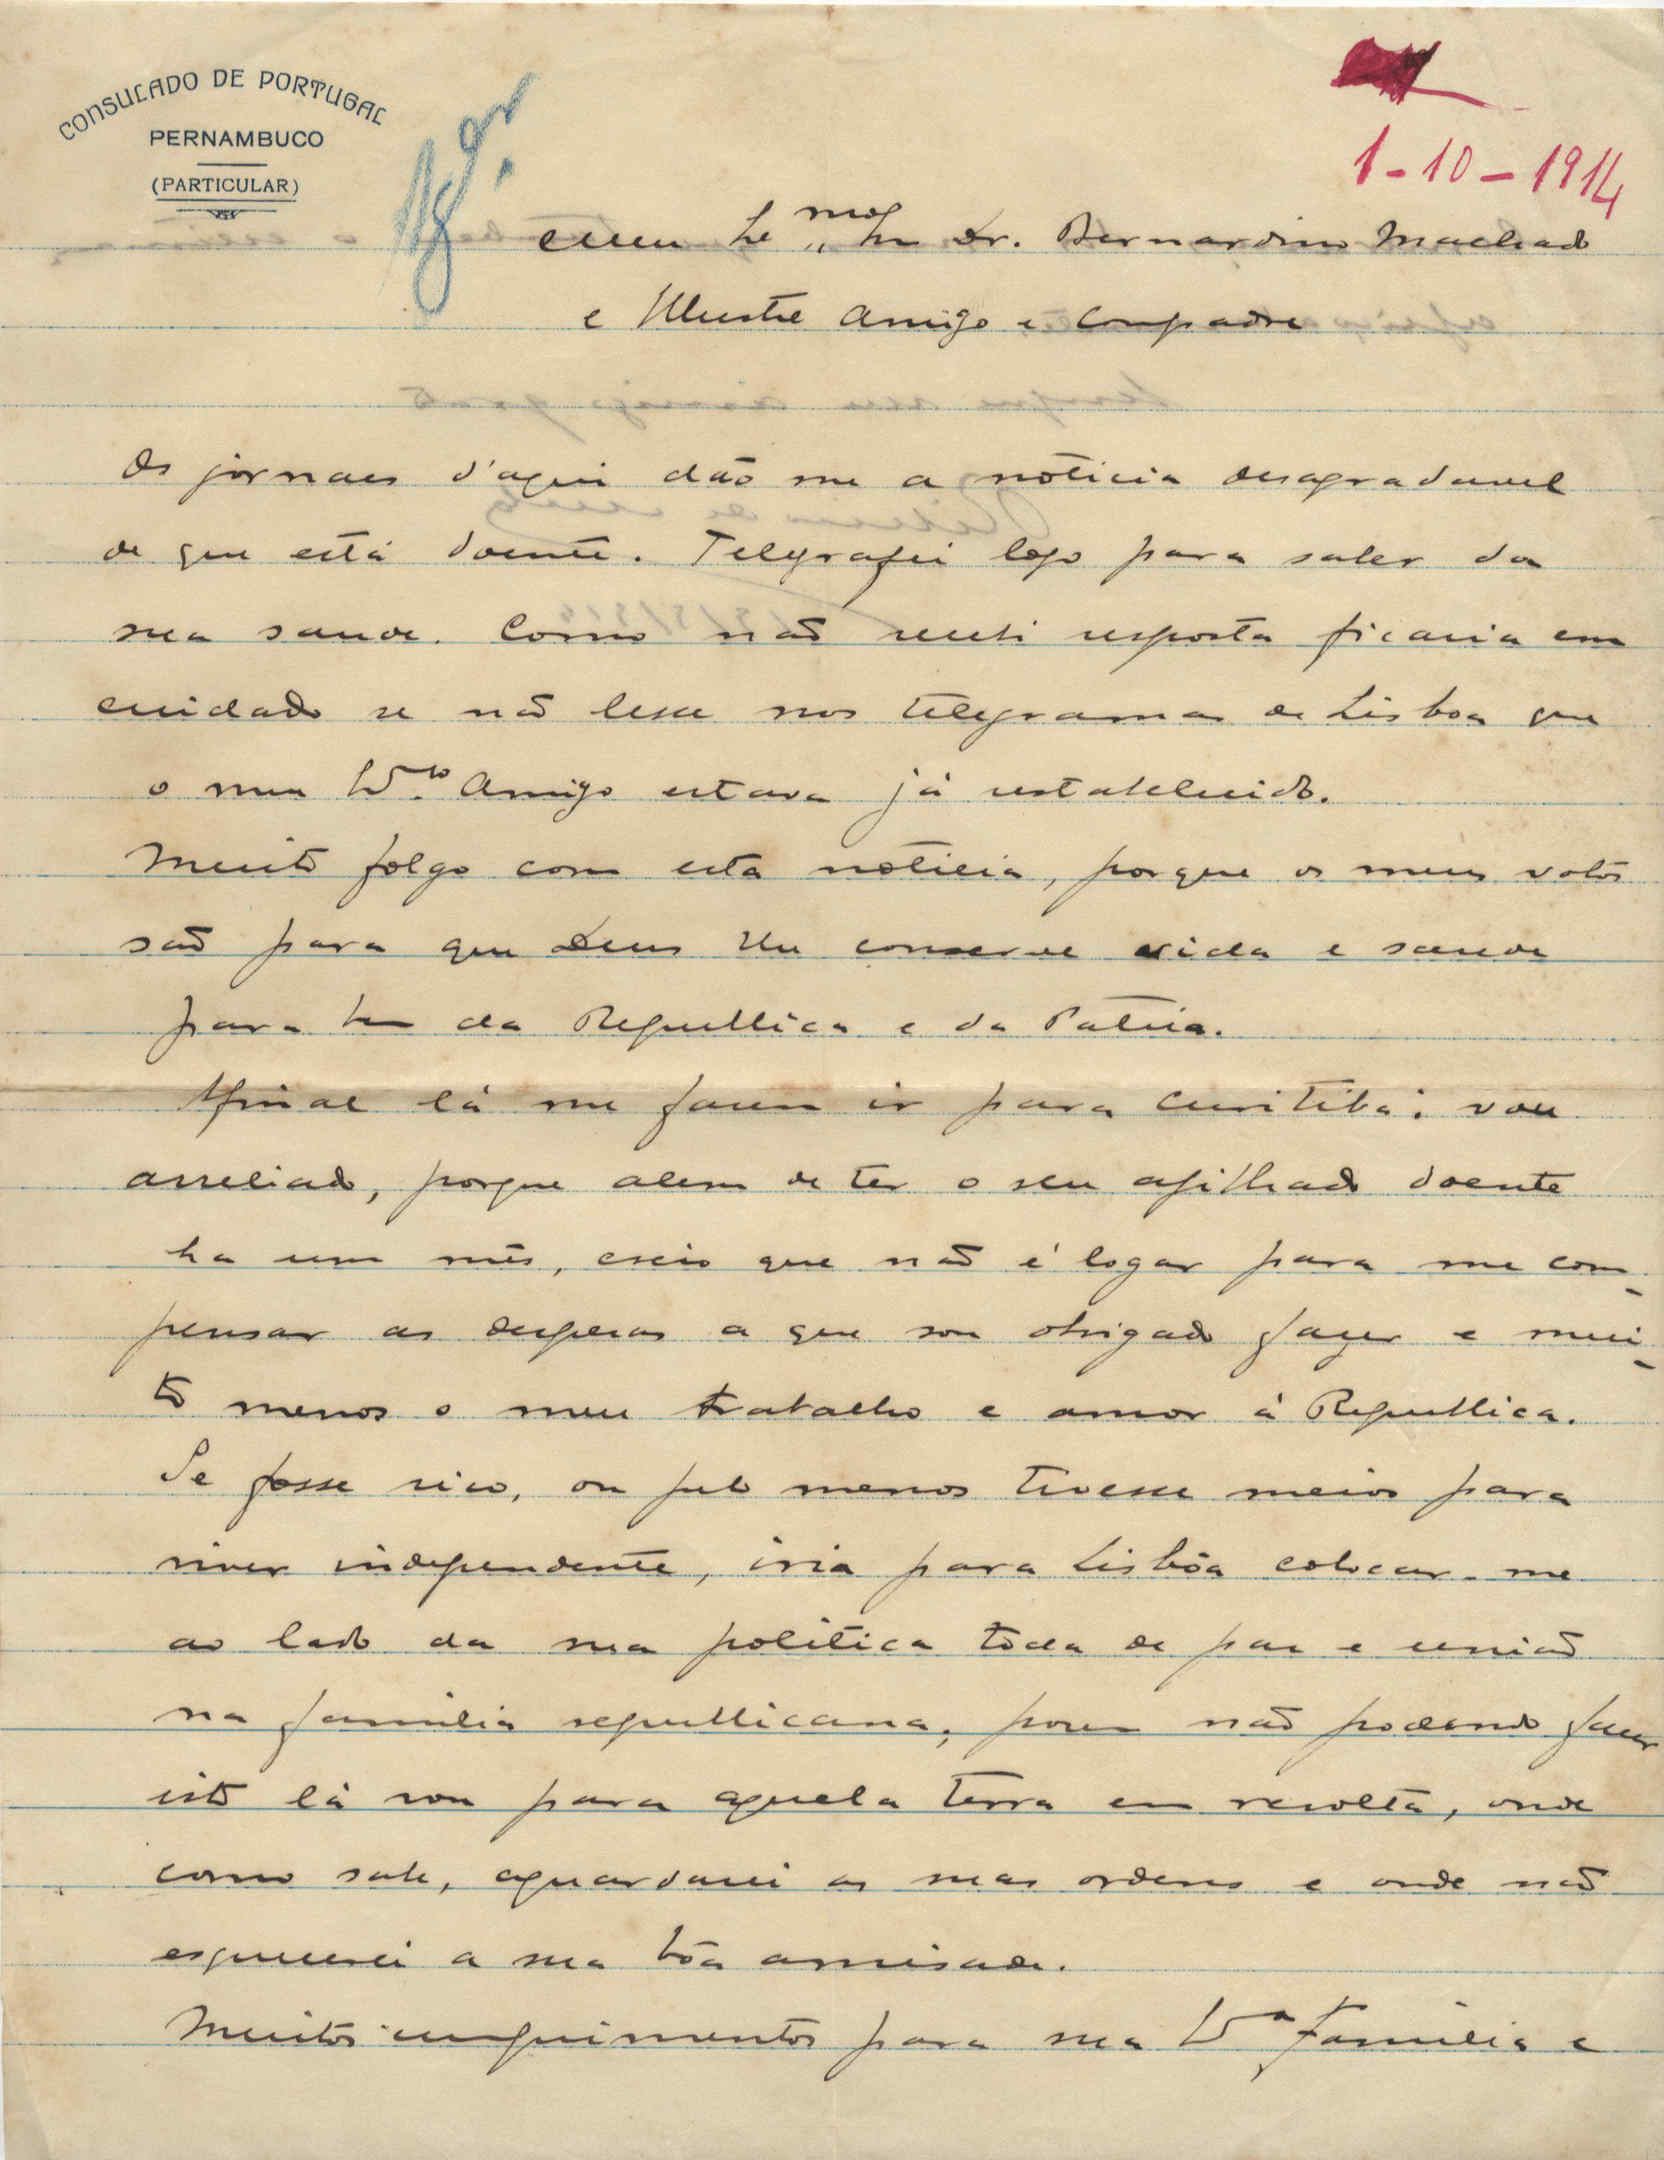 CONSULADO DE PORTUGAL
PERNAMBUCO
(PARTICULAR)
1-10-1914
Meu Exmo Sr Dr. Bernardino Machado
e Illustre Amigo e Compadre
Os jornaes d'aqui dão me a nóticia desagradavel
de que está doente. Telegrafei logo para saber da
sua saude. Como não recebi resposta ficaria em
cuidado se não lesse nos telegramas de Lisboa que
o meu Amigo estava já restabelecido.
Muito folgo com esta nóticia, porque os meus votos
são para que Deus lhe conserve vida e saude
para bem da Republica e da Patria.
Afinal lá me fazem ir para Curitiba: vou
arreliado, porque alem de ter o seu afilhado doente
ha um mês, creio que não é logar para me com-
pensar as despezas a que sou obrigado fazer e mui-
to menos o meu trabalho e amor á Republica.
Se fosse rico, ou pelo menos tivesse meios para
viver independente, iria para Lisbôa colocar-me
ao lado da sua politica toda de paz e união
na familia republicana, porem não podendo fazer
isto lá vou para aquela terra em revolta, onde
como sabe, aguardarei as suas ordens e onde não
esquecerei a sua bôa amisade.
Muitos cumprimentos para sua Familia e